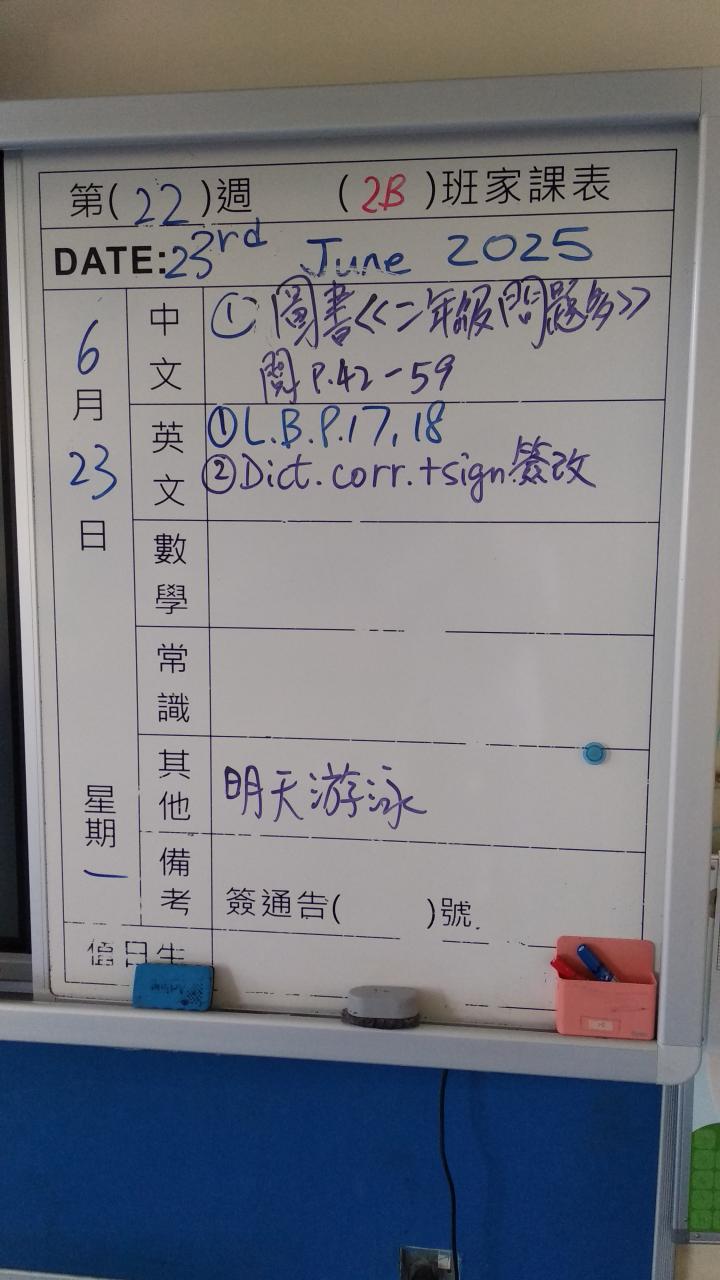 第(22)週 (2B)班家課表
DATE:23rd June 2025
6月23日 星期一
中文 ① 圖書《二年級問題多》
閱 P.42-59
英文 ①L.B.P.17,18
②Dict.corr.+sign簽改
數學
常識
其他 明天游泳
備考 簽通告( )號.
值日生